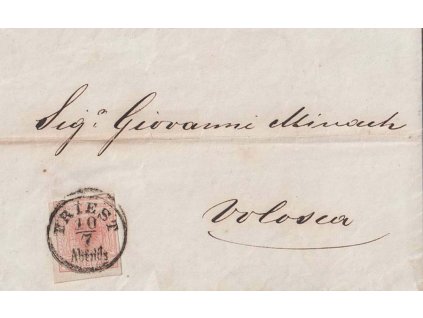 Sig.r Giovanni Minach
Volosca
TRIEST
10/7
Abends